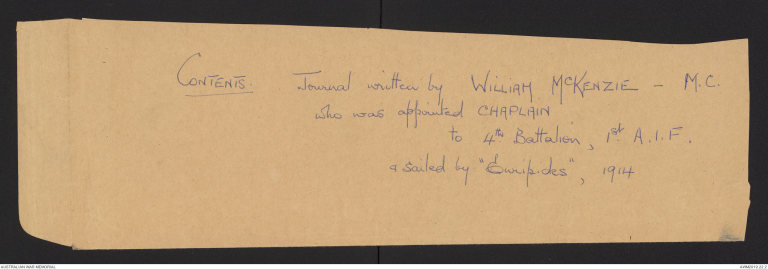 CONTENTS. Journal written by WILLIAM McKENZIE – M.C.
who was appointed CHAPLAIN
to 4th Battalion, 1st A.I.F.
& sailed by "Euripides", 1914
AUSTRALIAN WAR MEMORIAL
AWM2019.22.2